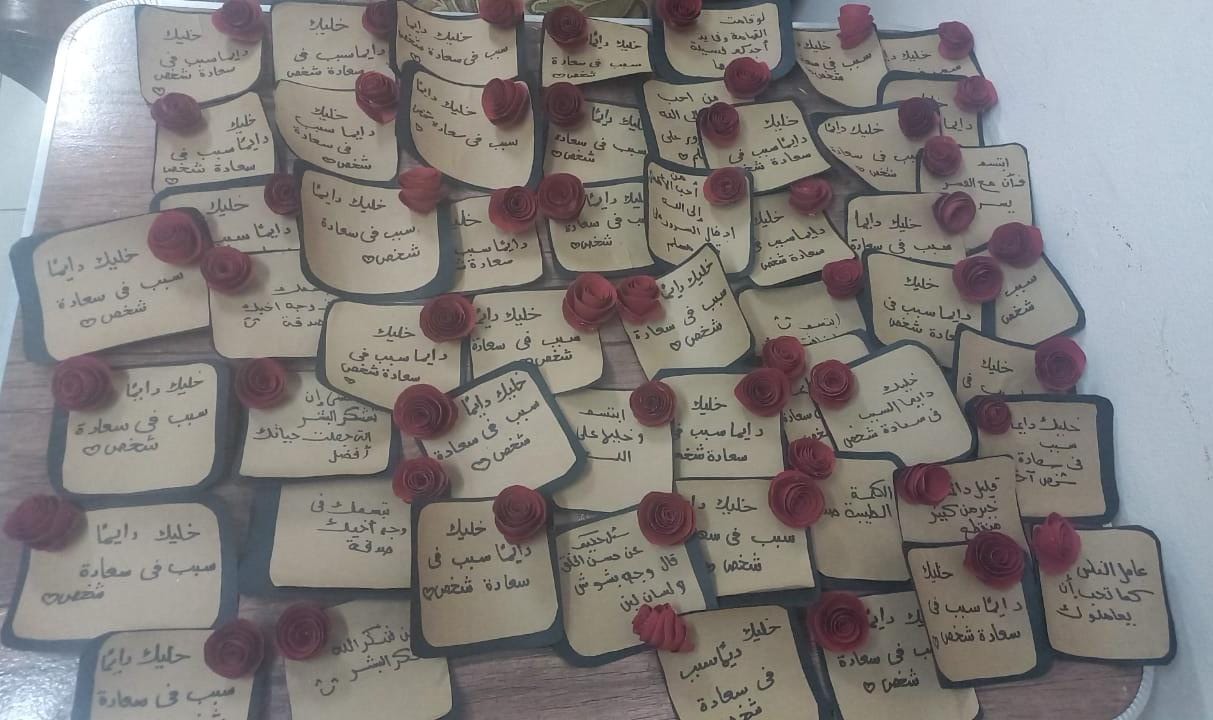 خليك
دايما سبب فى
سعادة شخص
خليك
دايما سبب فى
سعادة شخص
خليك دايما
سبب فى سعادة شخص
خليك دايمًا
سبب فى سعادة
شخص
لو قامت
القيامة وفى يد
أحدكم فسيلة
خليك
دايما سبب فى
سعادة شخص
خليك
خليك
دايمًا سبب فى
سعادة شخص
خليك
دايما سبب
فى سعادة
شخص
خليك دايمًا
سبب فى سعادة شخص
سبب فى سعادة
شخص
من احب
خليك
دايما سبب فى
سعادة شخص
خليك دايمًا
سبب فى سعادة
شخص
دايما
ابتسم
فإن مع العسر
يسر
خليك
دايمًا سبب
خليك دايمًا
سبب فى سعادة
شخص
دايمًا سبب
سعادة
سبب فى سعادة
شخص
من
أحب الأعمال
إلى الله
ادخال السرور على
مسلم
خليك
دايما سبب فى
سعادة شخص
خليك دايما
سبب فى سعادة
خليك دايمًا
سبب فى سعادة
شخص
وجه اخيك
صدقة
خليك
دايما سبب فى
سعادة شخص
خليك دايمًا
سبب فى سعادة
شخص
خليك دايمًا
سبب فى سعادة
شخص
ابتسم
خليك
دايما سبب فى
سعادة شخص
سبب
شخص
خليك دايمًا
سبب فى سعادة
شخص
إن
نشكر البشر
التى جعلت حياتك
أفضل
خليك دايمًا
سبب فى سعادة
شخص
ابتسم
وخليها على
الله
خليك
دايما سبب فى
سعادة شخص
خليك
دايما السبب
فى سعادة شخص
خليك
خليك دايما
سبب
فى سعادة
شخص
خليك دايمًا
سبب فى سعادة
شخص
تبسمك فى
وجه أخيك
صدقة
خليك
دايمًا سبب فى
سعادة شخص
عن حسن الخلق
قال وجه بشوش
ولسان لين
خليك دايمًا
سبب فى سعادة
شخص
الكلمة
الطيبة
قليل دائم
خير من كثير
منقطع
خليك
دايمًا سبب فى
سعادة شخص
عامل الناس
كما تحب أن
يعاملوك
خليك دايمًا
سبب فى سعادة
فنكر الله
البشر
خليك
ديمًا سبب
فى سعادة
خليك دايمًا
سبب فى سعادة
شخص